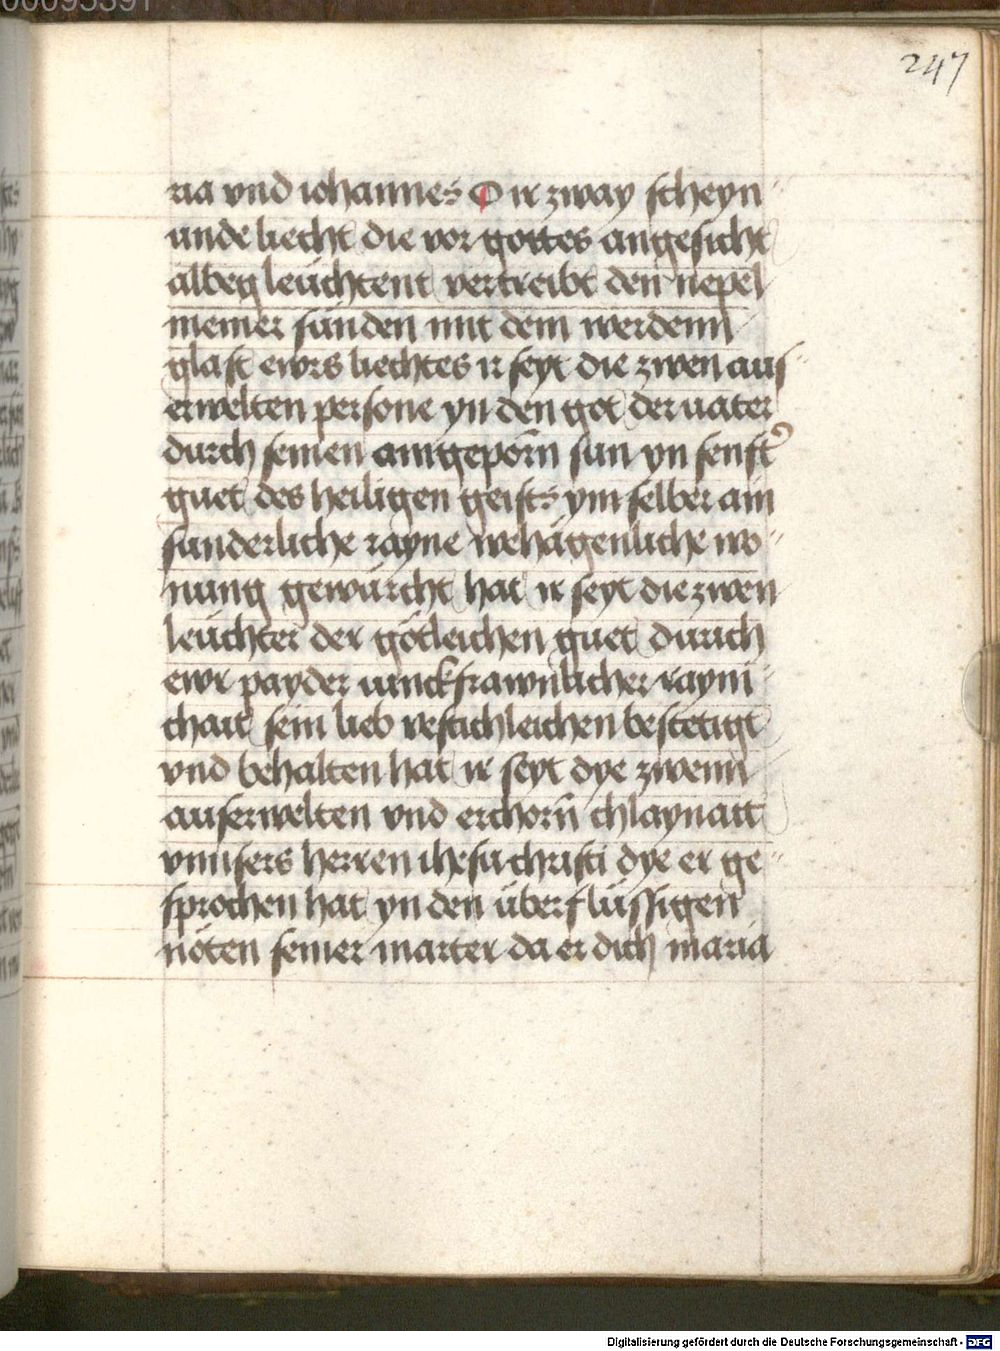 247
ria vnd iohannes O ir zway scheyn-
unde liecht die vor gottes angesicht
albeg leüchtent vertreibt den nepel
meiner sünden mit dem werdenn
glast ewrs liechtes ir seyt die zwen aus-
erwelten persone yn den got der uater
durch seinen aingeporn̄ sun yn senft
guet des heiligen geists ym selber ain
sunderliche rayne wehägenliche wo-
nung gewürcht hat ir seyt die zwen
leüchter der götleichen guet durich
ewr payder iunckfrawnlicher rayni-
chait sein lieb vestichleichen bestetigt
vnd behalten hat ir seyt dye zwenn
auserwelten vnd erchorn̄ chlaynatt
vnnsers herren ihesu christi dye er ge-
sprochen hat yn den überflüssigen
nöten seiner marter da er dich maria
Digitalisierung gefördert durch die Deutsche Forschungsgemeinschaft - DFG